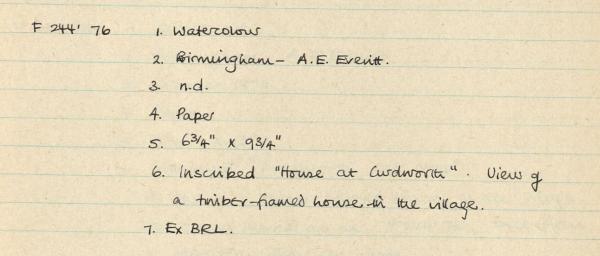 F 244' 76 1. Watercolour
2. Birmingham - A.E. Everitt.
3. n.d.
4. Paper
5. 6 3/4" x 9 3/4"
6. Inscribed "House at Curdworth". View of
a timber-framed house in the village.
7. Ex BRL.